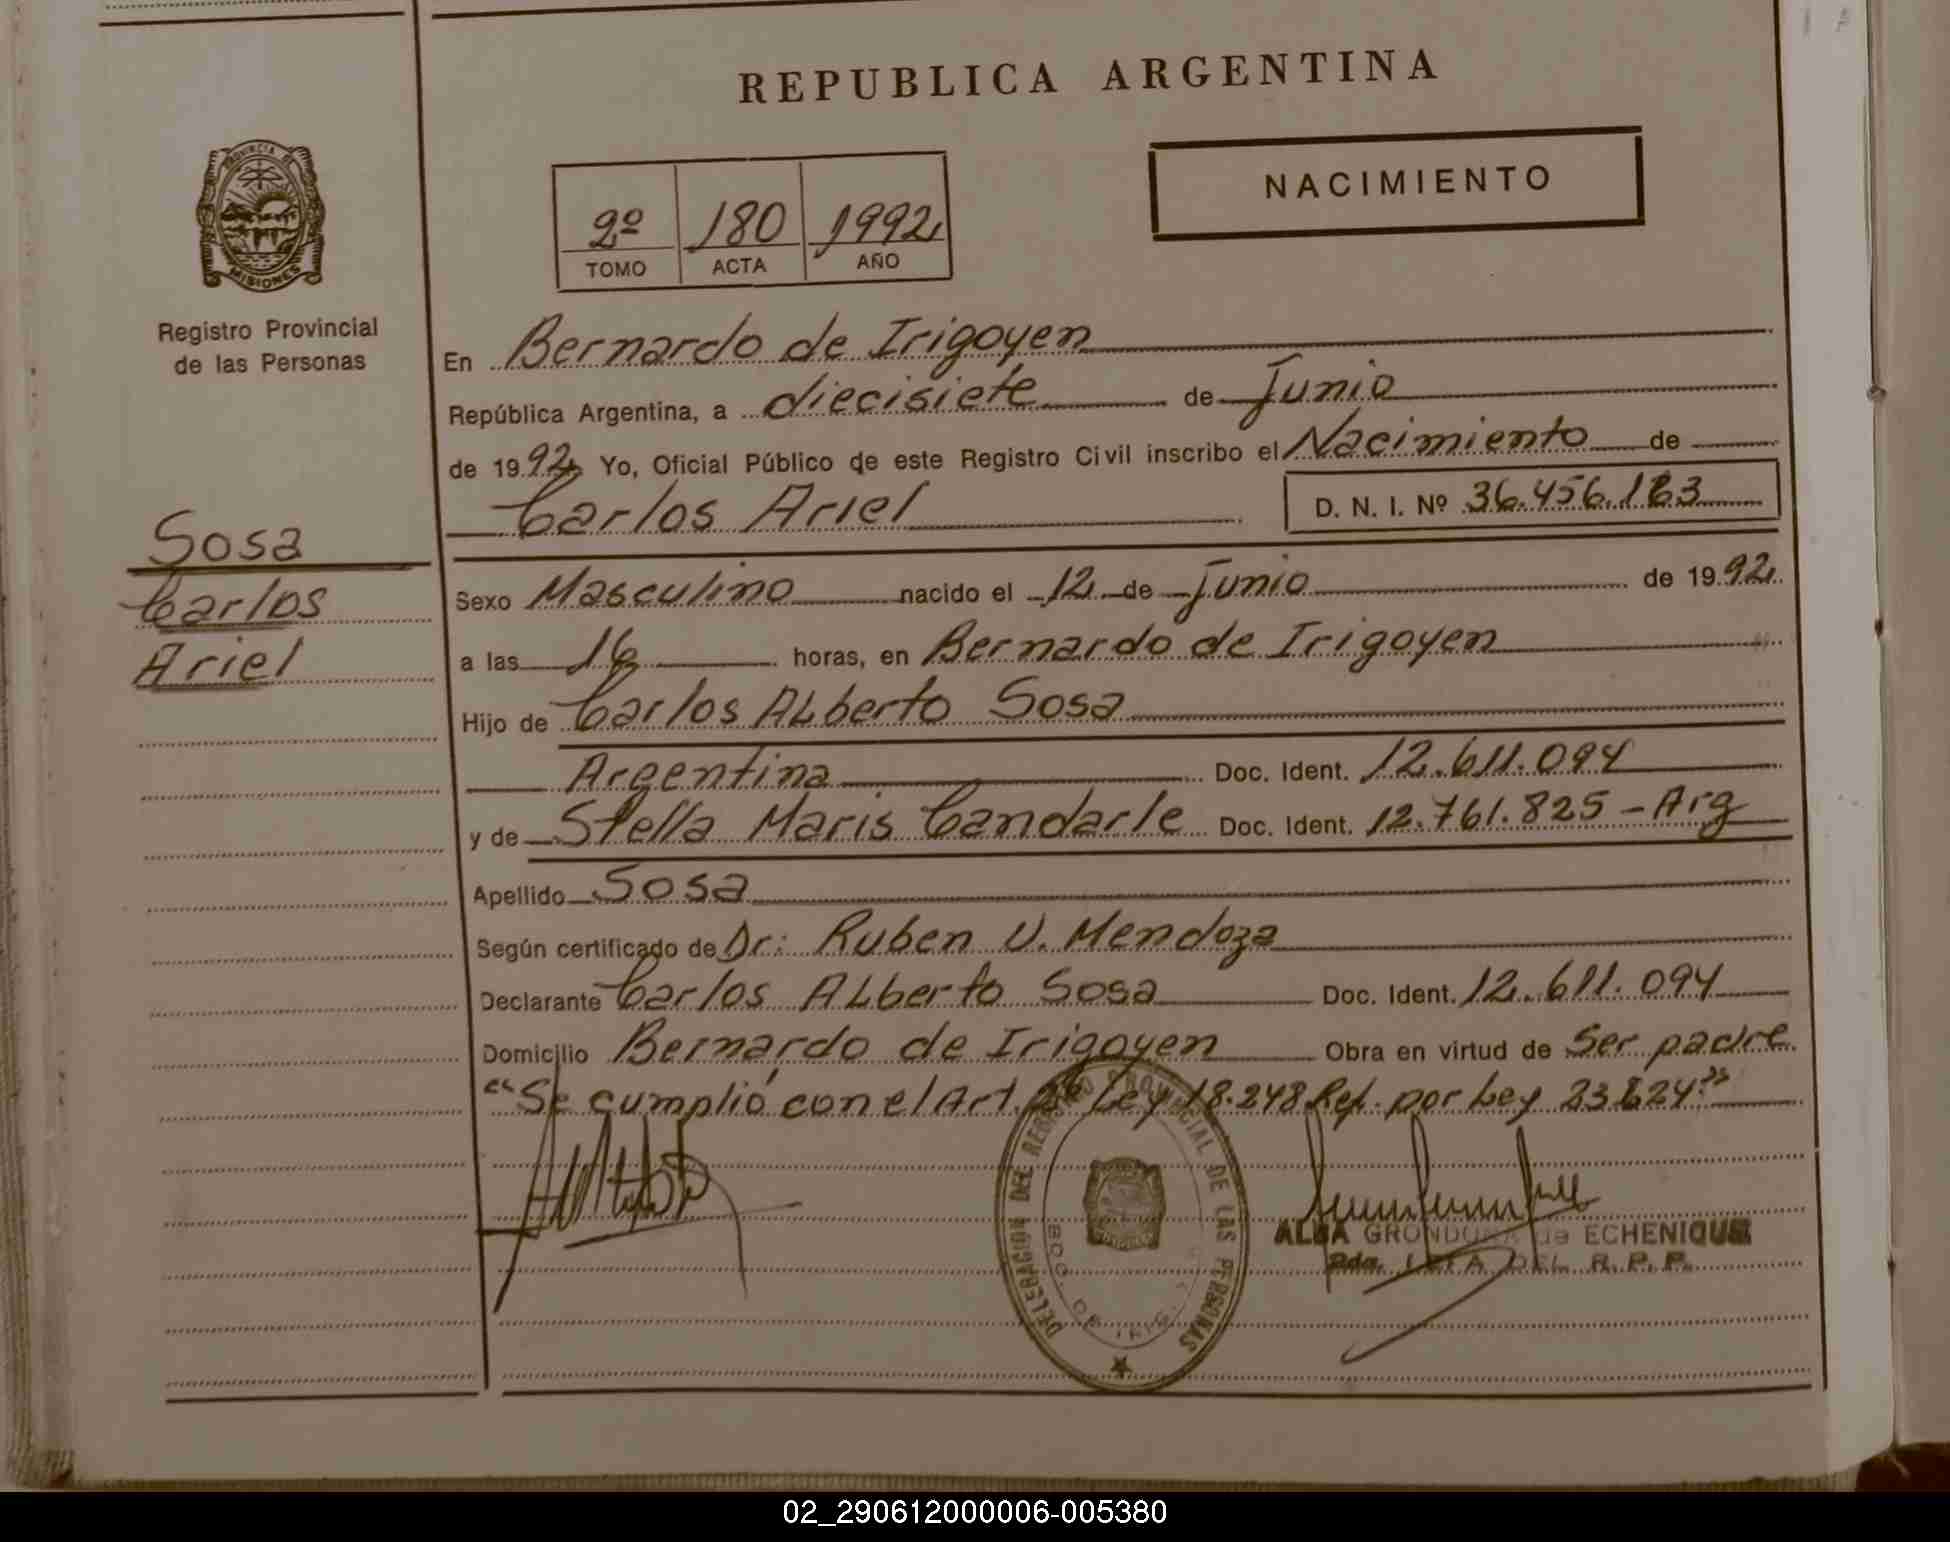 REPUBLICA ARGENTINA
NACIMIENTO
2º 180 1992
TOMO ACTA AÑO
PROVINCIA DE
MISIONES
Registro Provincial
de las Personas
Sosa
Carlos
Ariel
En Bernardo de Irigoyen
República Argentina, a diecisiete de Junio
de 1992 Yo, Oficial Público de este Registro Civil inscribo el Nacimiento de
Carlos Ariel D. N. I. Nº 36.456.163
Sexo Masculino nacido el 12 de Junio de 1992
a las 16 horas, en Bernardo de Irigoyen
Hijo de Carlos ALberto Sosa
Argentina Doc. Ident. 12.611.094
y de Stella Maris Candarle Doc. Ident. 12.761.825 - Arg
Apellido Sosa
Según certificado de Dr: Ruben U. Mendoza
Declarante Carlos ALberto Sosa Doc. Ident. 12.611.094
Domicilio Bernardo de Irigoyen Obra en virtud de Ser padre
"Se cumplió con el Art. Ley 18.248 Ref. por Ley"
DELEGACION DEL REGISTRO PROVINCIAL DE LAS PERSONAS
BDO. DE IRIG.
ALBA GRONDONA de ECHENIQUE
2da. JEFA DEL R.P.P.
02_290612000006-005380